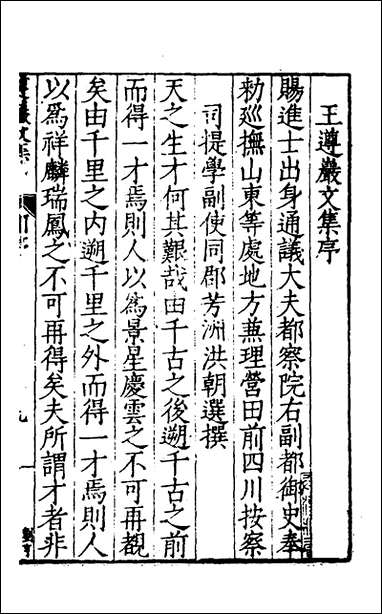 王遵巖文集序
賜進士出身通議大夫都察院右副都御史奉
勅巡撫山東等處地方兼理營田前四川按察
司提學副使同郡芳洲洪朝選撰
天之生才何其艱哉由千古之後遡千古之前
而得一才焉則人以為景星慶雲之不可再覩
矣由千里之内遡千里之外而得一才焉則人
以爲祥麟瑞鳳之不可再得矣夫所謂才者非